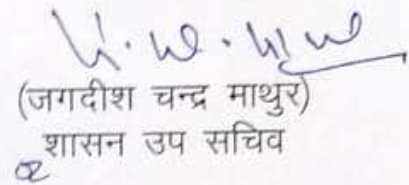 (जगदीश चन्द्र माथुर)
शासन उप सचिव